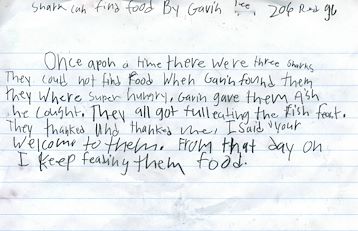 Shark can find food By Gavin
Once apon a time there were three sharks
They could not find Food When Gavin found them
they Where super hungry. Gavin gave them fish
he caught. They all got full eating the Fish feast.
They thanked and thanked me, I said your
Welcome to them. From that day on
I keep feading them food.